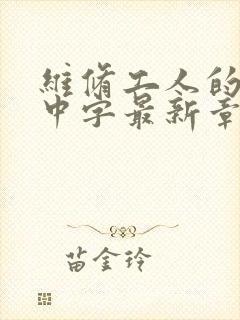 維脩工人的
中字最新章
苗金玲